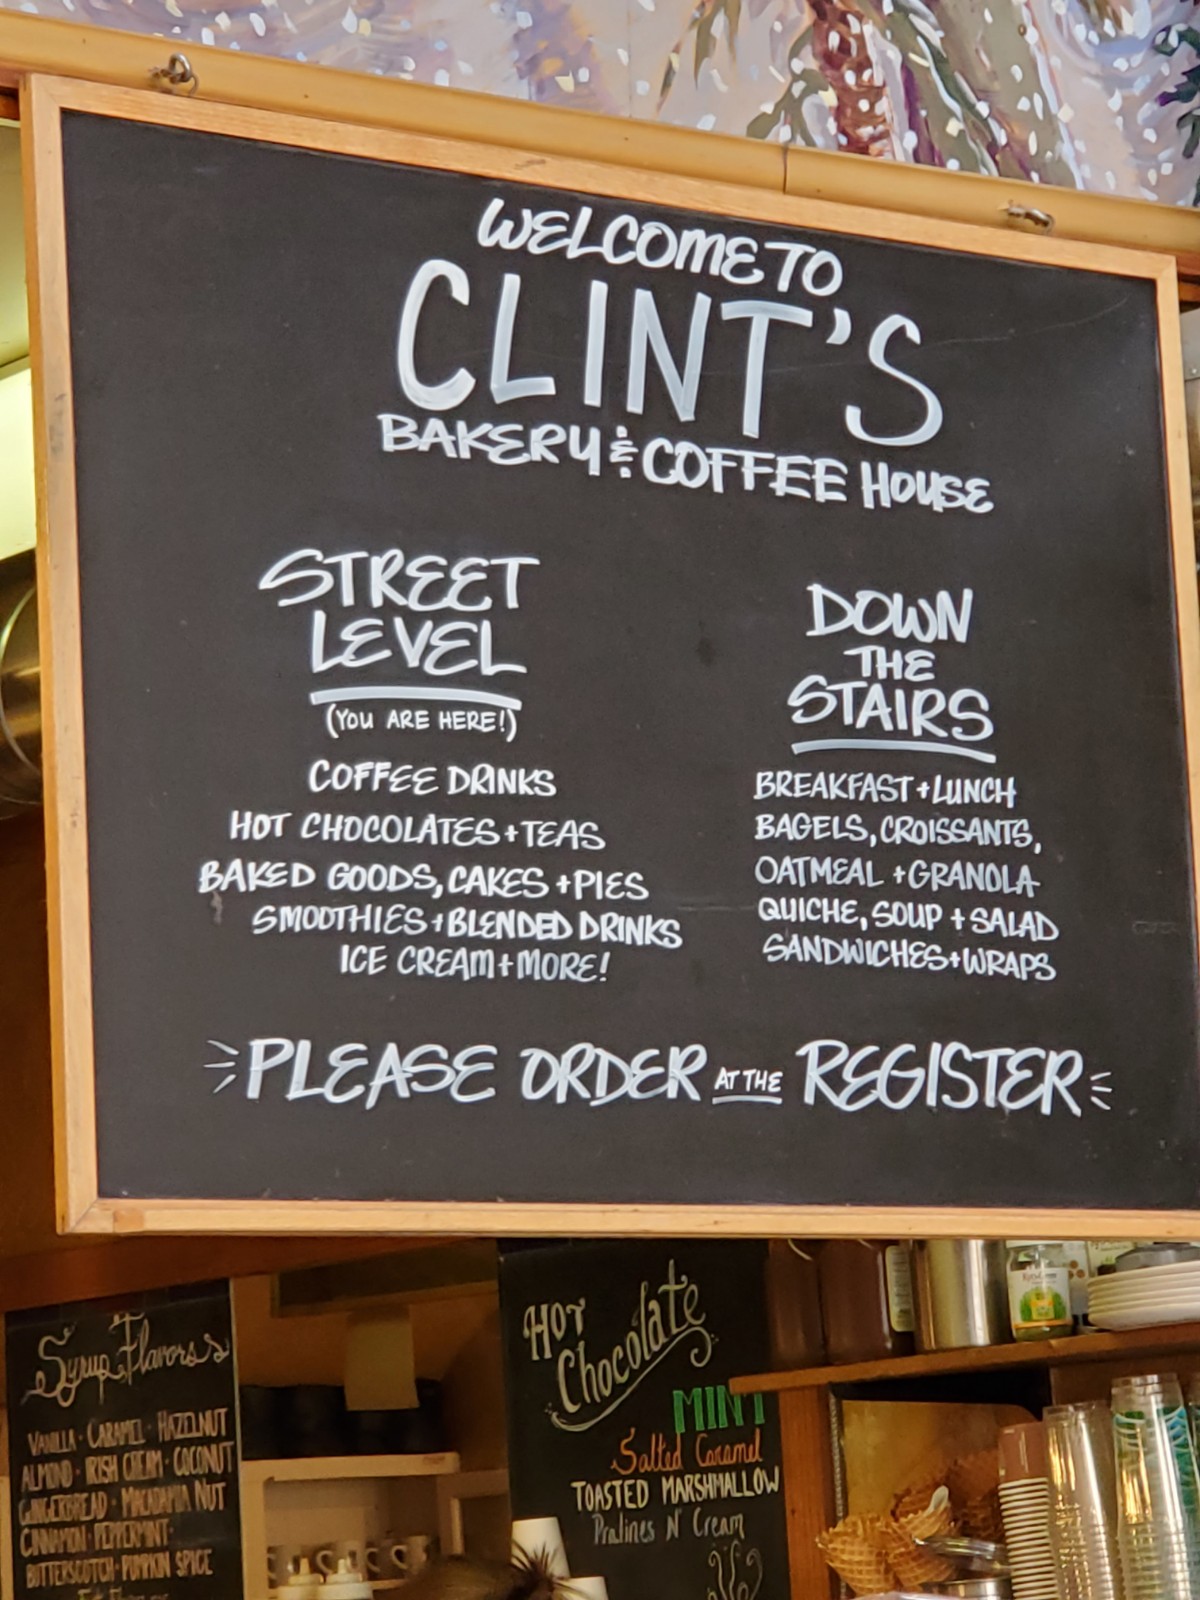 WELCOME TO
CLINT'S
BAKERY & COFFEE HOUSE
STREET
LEVEL
(YOU ARE HERE!)
COFFEE DRINKS
HOT CHOCOLATES + TEAS
BAKED GOODS, CAKES + PIES
SMOOTHIES + BLENDED DRINKS
ICE CREAM + MORE!
DOWN
THE
STAIRS
BREAKFAST + LUNCH
BAGELS, CROISSANTS,
OATMEAL + GRANOLA
QUICHE, SOUP + SALAD
SANDWICHES + WRAPS
PLEASE ORDER AT THE REGISTER
Syrup Flavors
VANILLA · CARAMEL · HAZELNUT
ALMOND · IRISH CREAM · COCONUT
GINGERBREAD · MACADAMIA NUT
CINNAMON · PEPPERMINT ·
BUTTERSCOTCH · PUMPKIN SPICE
HOT
Chocolate
MINT
Salted Caramel
TOASTED MARSHMALLOW
Pralines N' Cream